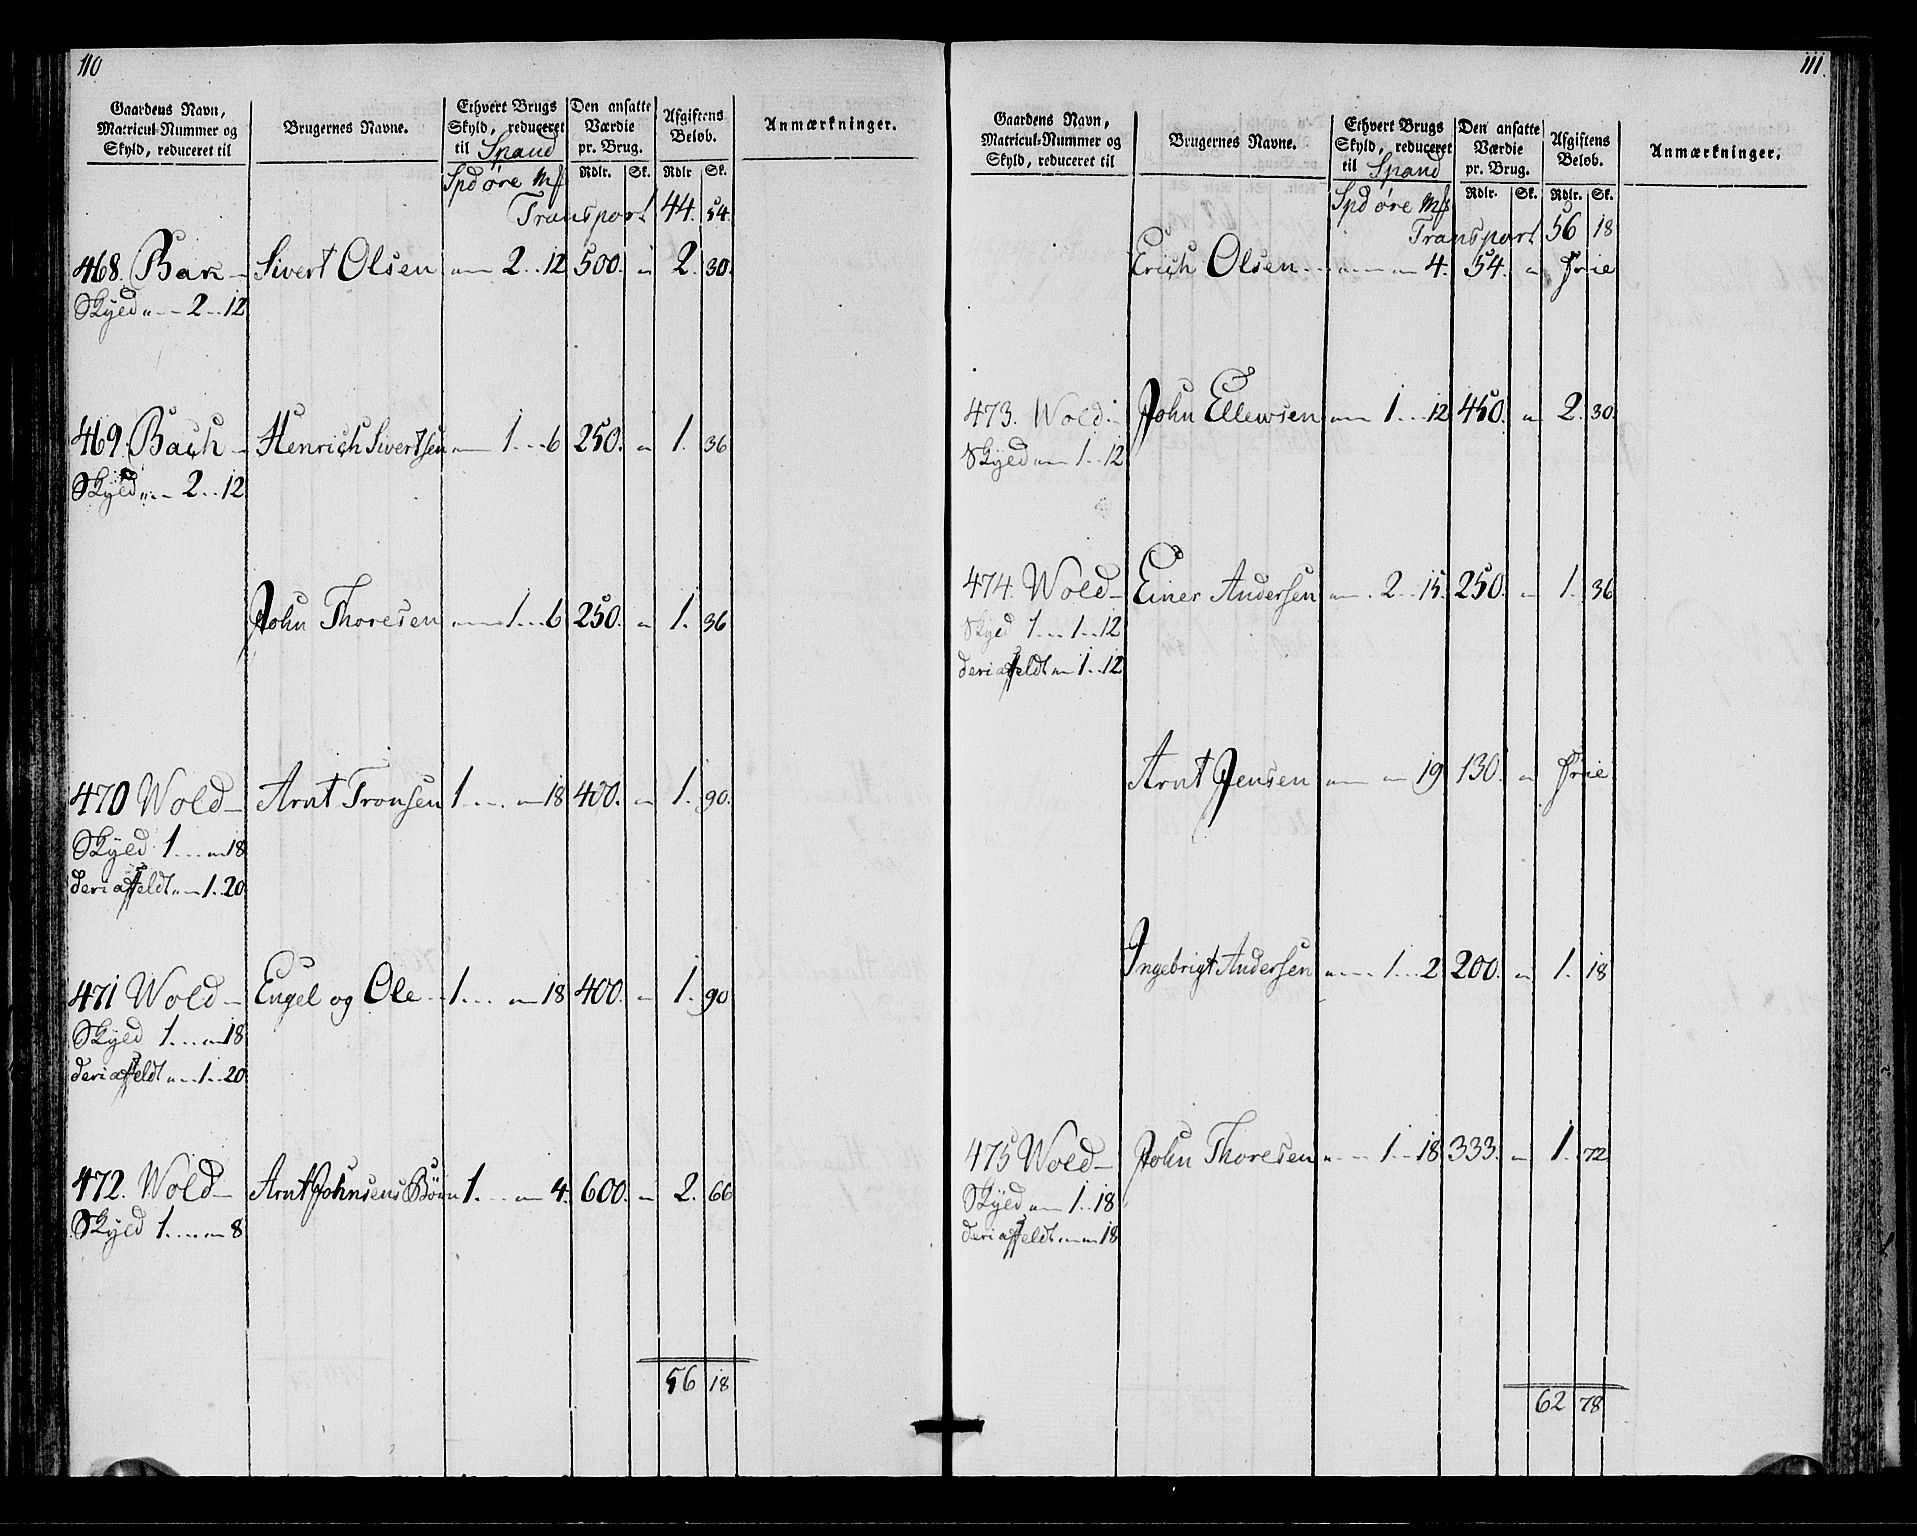 110
Gaardens Navn, Matricul-Nummer og Skyld, reduceret til
Brugernes Navne.
Ethvert Brugs Skyld, reduceret til Spand
Den ansatte Værdie pr. Brug.
Afgiftens Beløb.
Anmærkninger.
Spd øre Mf Rdlr. Sk. Rdlr Sk.
Transport 44. 54.
468. Bak — Sivert Olsen „ — 2 .. 12 500. „ 2. 30.
Skyld „ - - 2 .. 12
469. Bach — Henrich Sivertsen „ — 1 ... 6 250. „ 1. 36
Skyld „ .. - 2 .. 12
John Thoresen „ — 1 ... 6 250. „ 1. 36
470 Wold — Arnt Tronsen 1 .... „ 18 400. „ 1. 90.
Skyld 1 .... „ 18
deri affeldt „ — 1 .. 20
471 Wold — Engel og Ole .. 1 .... „ 18 400. „ 1. 90
Skyld 1 .... „ 18
deri affeldt „ .. 1 .. 20
472. Wold — Arnt Johnsens Børn 1 .... „ 4. 600. „ 2. 66
Skyld 1 .... „ 8
56 18
111.
Gaardens Navn, Matricul-Nummer og Skyld, reduceret til
Brugernes Navne.
Ethvert Brugs Skyld, reduceret til Spand
Den ansatte Værdie pr. Brug.
Afgiftens Beløb.
Anmærkninger.
Spd øre Mf Rdlr. Sk. Rdlr. Sk.
Transport 56 18
Erich Olsen .. „ — „ 4. 54. „ frie
473. Wold .. John Ellewsen „ — 1 ... 12 450. „ 2. 30.
Skyld „ — 1 .. 12
474. Wold — Einer Andersen „ — . 2 .. 15. 250. „ 1. 36
Skyld 1 ... 1 .. 12
deri affeldt „ 1 .. 12
Arnt Jensen „ — „ 19 130. „ frie
Ingebrigt Andersen „ ... 1 ... 2 200. „ 1. 18
475 Wold — John Thoresen „ ... 1 .. 18 333. „ 1. 72
Skyld „ — 1 .. 18
deri affeldt „ — „ 18
62 78